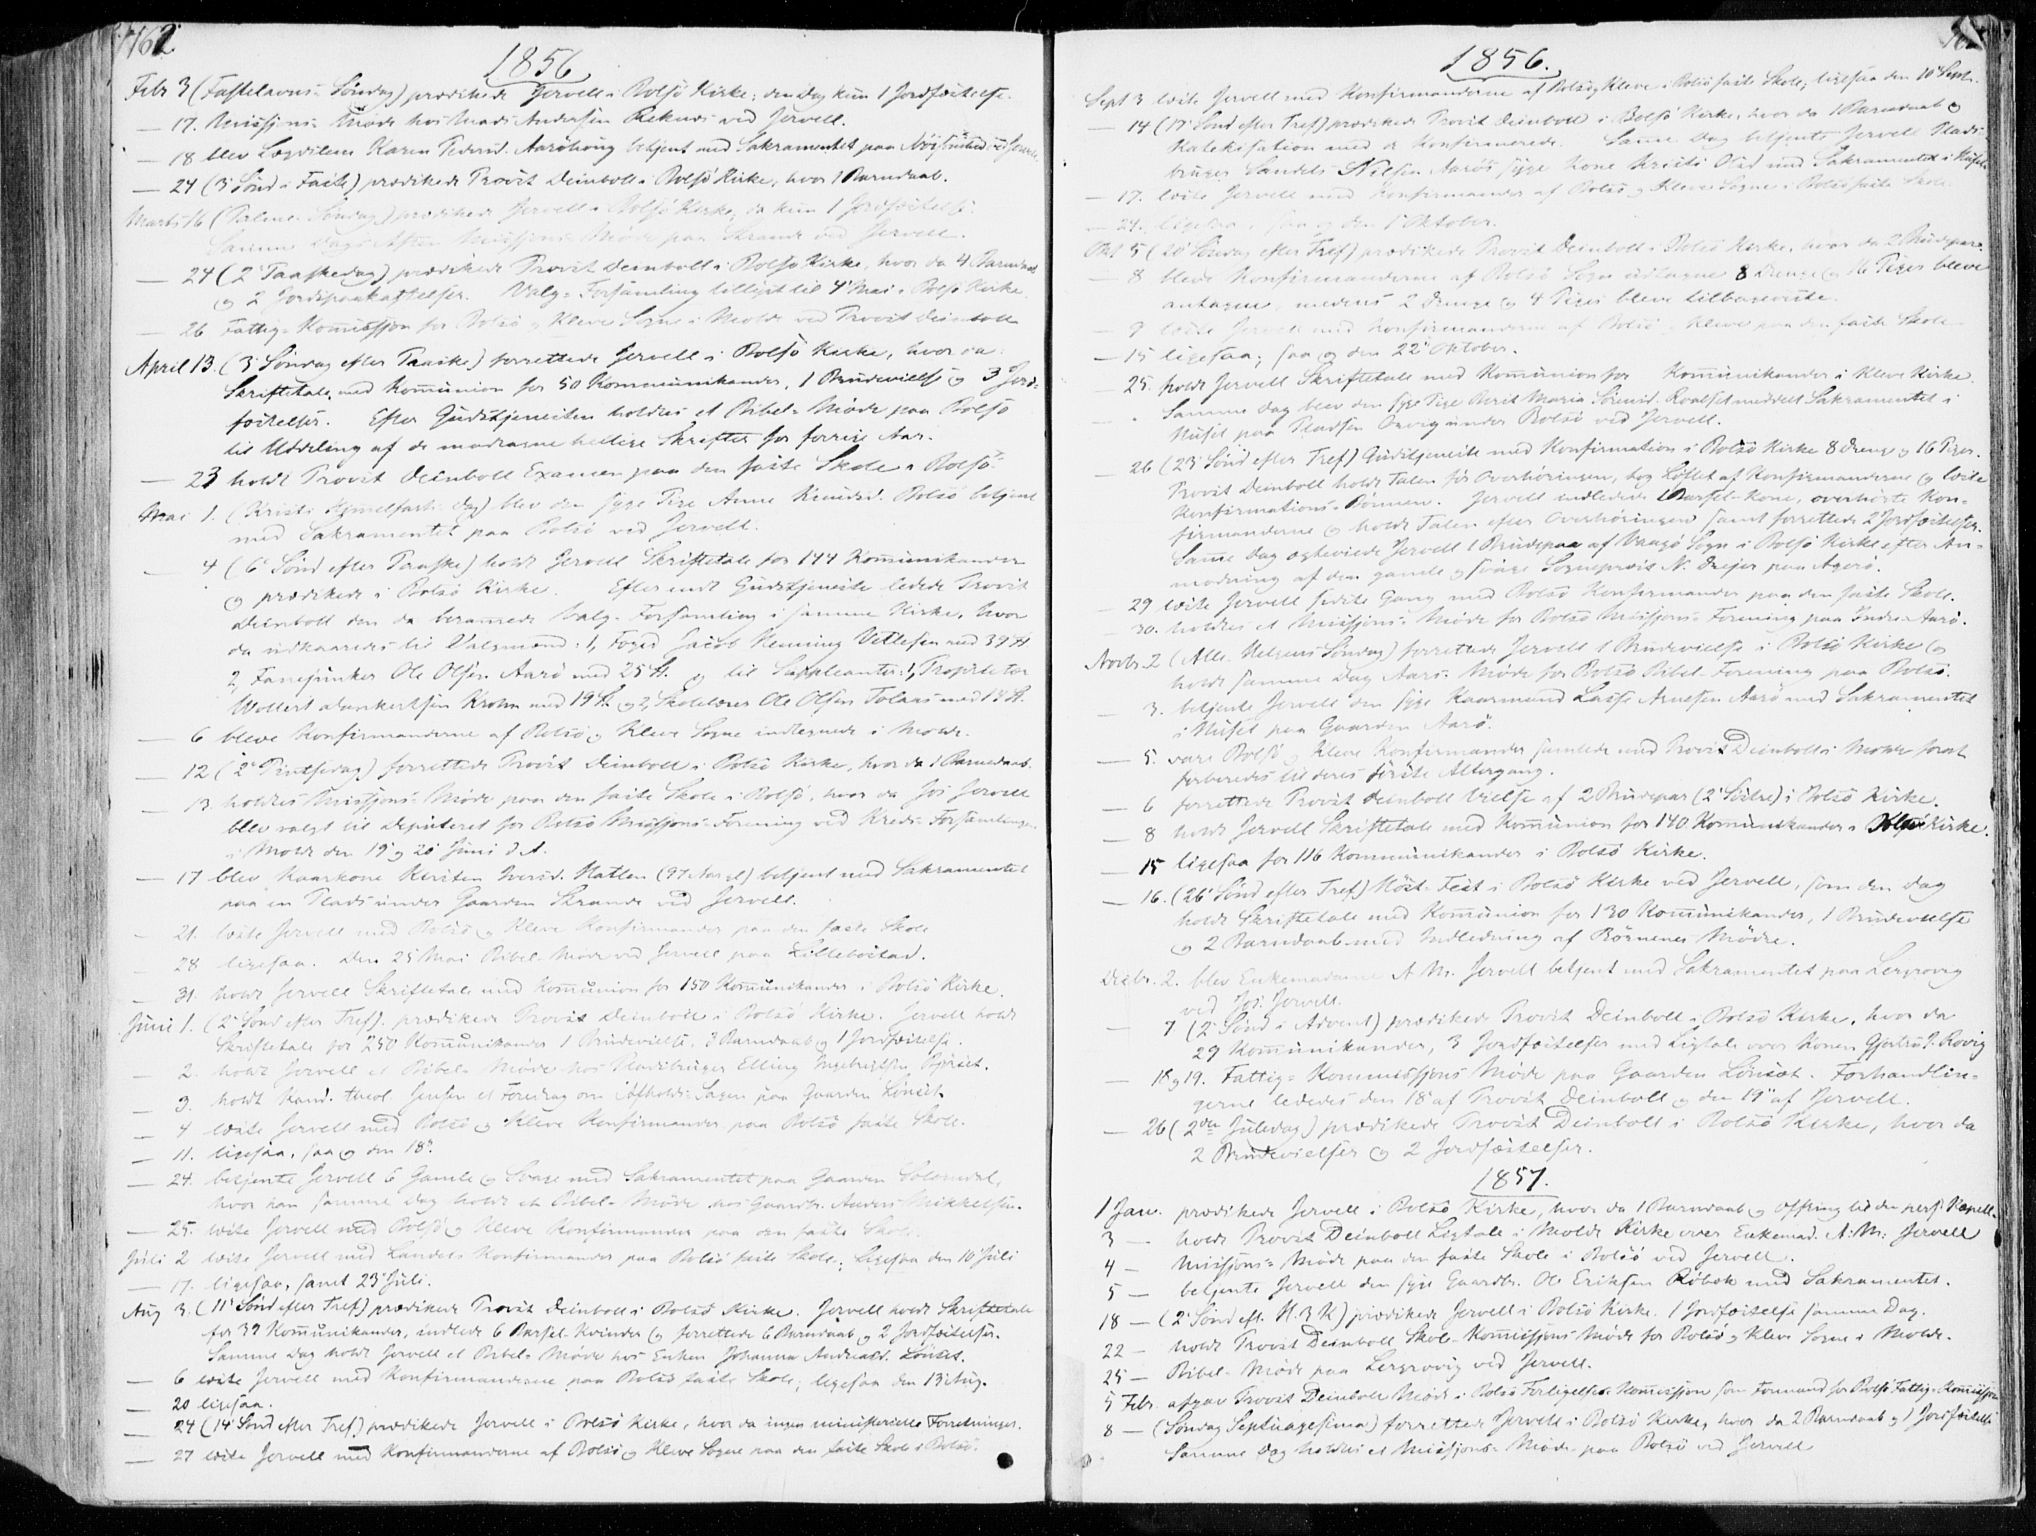 162
1856
Febr 3 (Fastelavns-Søndag) prædikede Jervell i Bolsø Kirke; den Dag kun 1 Jordfæstelse.
— 17. Missions-Møde hos Mads Andersen Reknes ved Jervell.
— 18 blev Karen Pedersd. Aarøhoug betjent med Sakramentet paa
— 24 (3' Sønd i Faste) prædikede Provst Deinboll i Bolsø Kirke, hvor 1 Barndaab.
Marts 16 (Palme-Søndag) prædikede Jervell i Bolsø Kirke, da kun 1 Jordfæstelse.
Samme Dags Aften Missions-Møde paa Strande ved Jervell.
— 24 (2' Paaskedag) prædikede Provst Deinboll i Bolsø Kirke, hvor da 4 Barndaab
og 2 Jordspaakastelser. Valg-Forsamling tillyst til 4' Mai i Bolsø Kirke.
— 26 Fattig-Kommission for Bolsø og Kleve Sogne i Molde ved Provst Deinboll
April 13. (3' Søndag efter Paaske) forrettede Jervell i Bolsø Kirke, hvor da:
Skriftetale, med Kommunion for 50 Kommunikander, 1 Brudevielse og 3 Jord-
fæstelser. Efter Gudstjenesten holdtes et Bibel-Møde paa Bolsø
til Uddeling af de modtagne hellige Skrifter for forrige Aar.
— 23 holdt Provst Deinboll Examen paa den faste Skole i Bolsø.
Mai 1. (Kristi Himmelfarts Dag) blev den syge Pige Anne Knudsd. Bolsø betjent
med Sakramentet paa Bolsø ved Jervell.
— 4 (6' Sønd efter Paaske) holdt Jervell Skriftetale for 144 Kommunikander
og prædikede i Bolsø Kirke. Efter endt Gudstjeneste ledede Provst
Deinboll den da berammede Valg-Forsamling i samme Kirke, hvor
da udkaaredes til Valgmænd: 1, Foged Jacob Henning Vitlesen med 39 St
2, Fanejunker Ole Olsen Aarø med 25 St. og til Suppleanter: 1, Proprietær
Wollert Krohn med 19 St. og 2, Skolelærer Ole Olsen Tolaas med 15 St.
— 6 bleve Konfirmanderne af Bolsø og Kleve Sogne indtegnede i Molde.
— 12 (2' Pintsedag) forrettede Provst Deinboll i Bolsø Kirke, hvor da 1 Barnedaab.
— 13. holdtes Missions-Møde paa den faste Skole i Bolsø, hvor da Jos. Jervell
blev valgt til Deputeret for Bolsø Missions-Forening ved Kreds-Forsamlingen
i Molde den 19' og 20' Juni d. A.
— 17 blev Kaarkone Kirsten Iversd. Hatlen (97 Aar gl.) betjent med Sakramentet
paa en Plads under Gaarden Strande ved Jervell.
— 21. læste Jervell med Bolsø og Kleve Konfirmander paa den faste Skole
— 28 ligesaa. Den 25 Mai Bibel-Møde ved Jervell paa Lillebostad.
— 31. holdt Jervell Skriftetale med Kommunion for 150 Kommunikander i Bolsø Kirke.
Juni 1. (2' Sønd efter Tref.) prædikede Provst Deinboll i Bolsø Kirke. Jervell holdt
Skriftetale for 250 Kommunikander 1 Brudevielse, 3 Barndaab og 1 Jordfæstelse.
— 2. holdt Jervell et Bibel-Møde hos Pladsbruger Elling Ingebrigtsen
— 3. holdt Kand. theol. Jensen et Foredrag om Afholds-Sagen paa Gaarden Lønset.
— 4 læste Jervell med Bolsø og Kleve Konfirmander paa Bolsø faste Skole.
— 11. ligesaa, saa og den 18'.
— 24. betjente Jervell 6 Gamle og Svage med Sakramentet paa Gaarden
hvor han samme Dag holdt et Bibel-Møde hos Gaardbr. Anders Mikkelsen.
— 25. læste Jervell med Bolsø og Kleve Konfirmander paa den faste Skole.
Juli 2 læste Jervell med Landets Konfirmander paa Bolsø faste Skole; ligesaa den 10' Juli
— 17. ligesaa, samt 23' Juli.
Aug 3. (11' Sønd efter Tref) prædikede Provst Deinboll i Bolsø Kirke. Jervell holdt Skriftetale
for 39 Kommunikander, indlede 6 Barsel-Kvinder og forrettede 6 Barndaab og 2 Jordfæstelser.
Samme Dag holdt Jervell et Bibel-Møde hos Enken Johanna Andreasd. Lønset.
— 6 læste Jervell med Konfirmanderne paa Bolsø faste Skole; ligesaa den 13' Aug.
— 20 ligesaa.
— 24 (14' Sønd efter Tref) prædikede Jervell i Bolsø Kirke, hvor da ingen ministerielle Forretninger.
— 27 læste Jervell med Konfirmanderne af Bolsø og Kleve Sogne paa den faste Skole i Bolsø.
1856.
Sept 3 læste Jervell med Konfirmanderne af Bolsø og Kleve i Bolsø faste Skole; ligesaa den 10' Sept.
— 14 (17' Sønd efter Tref) prædikede Provst Deinboll i Bolsø Kirke, hvor da 1 Barndaab og
Katekisation med de Konfirmerede. Samme Dag betjente Jervell Plads-
bruger Nilsen Aarøs syge Kone med Sakramentet i Huset.
— 17. læste Jervell med Konfirmander af Bolsø og Kleve Sogne i Bolsø faste Skole.
— 24. ligesaa, saa og den 1' Oktober.
Okt 5 (20' Søndag efter Tref) prædikede Provst Deinboll i Bolsø Kirke, hvor da 2 Brudepar.
— 8 bleve Konfirmanderne af Bolsø Sogn 8 Drenge og 16 Piger bleve
antagne, medens 2 Drenge og 4 Piger bleve tilbageviste.
— 9 læste Jervell med Konfirmanderne af Bolsø og Kleve paa den faste Skole
— 15 ligesaa; saa og den 22' Oktober.
— 25. holdt Jervell Skriftetale med Kommunion for Kommunikander i Kleve Kirke.
Samme Dag blev den syge Pige Berit Maria meddelt Sakramentet i
Huset paa Pladsen under Bolsø ved Jervell.
— 26 (23' Sønd efter Tref) Gudstjeneste med Konfirmation i Bolsø Kirke 8 Drenge og 16 Piger.
Provst Deinboll holdt Talen før Overhøringen, tog Løftet af Konfirmanderne og læste
Konfirmations-Bønnen. Jervell indledede 1 Barsel-Kone, overhørte Kon-
firmanderne og holdt Talen efter Overhøringen samt forrettede 2 Jordfæstelser.
Samme Dag egteviede Jervell 1 Brudepar af Vaagø Sogn i Bolsø Kirke efter An-
modning af den gamle og svage Sognepræst N. Dreyer paa Agerø.
— 29 læste Jervell sidste Gang med Bolsø Konfirmander paa den faste Skole.
— 30. holdtes et Missions-Møde for Bolsø Missions-Forening paa Indre-Aarø.
Novbr. 2 (Alle Helgens Søndag) forrettede Jervell 1 Brudevielse i Bolsø Kirke og
holdt samme Dag Aars-Møde for Bolsø Bibel-Forening paa Bolsø.
— 3. betjente Jervell den syge Kaarmand Lasse Arnesen Aarø med Sakramentet
i Huset paa Gaarden Aarø.
— 5. vare Bolsø og Kleve Konfirmander samlede med Provst Deinboll i Molde forat
forberedes til deres første Altergang.
— 6 forrettede Provst Deinboll Vielse af 2 Brudepar (2' Søstre) i Bolsø Kirke.
— 8 holdt Jervell Skriftetale med Kommunion for 140 Kommunikander i Bolsø Kirke.
— 15 ligesaa for 116 Kommunikander i Bolsø Kirke.
— 16. (26' Sønd efter Tref) Høst-Fest i Bolsø Kirke ved Jervell, som den Dag
holdt Skriftetale med Kommunion for 130 Kommunikander, 1 Brudevielse
og 2 Barndaab med Indledning af Børnenes Mødre.
Decbr. 2. blev Enkemadame A M. Jervell betjent med Sakramentet paa Lergrovig
ved Jos. Jervell.
— 7 (2' Sønd i Advent) prædikede Provst Deinboll i Bolsø Kirke, hvor da
29 Kommunikander, 3 Jordfæstelser med Ligtale over Konen Røvig
— 18 og 19. Fattig-Kommissions Møde paa Gaarden Lønset. Forhandlin-
gerne lededes den 18' af Provst Deinboll og den 19' af Jervell.
— 26 (2den Juledag) prædikede Provst Deinboll i Bolsø Kirke, hvor da
2 Brudevielser og 2 Jordfæstelser.
1857.
1 Jan. prædikede Jervell i Bolsø Kirke, hvor da 1 Barndaab og Offring til den pers: Kapell.
3 — holdt Provst Deinboll Ligtale i Molde Kirke over Enkemad. A: M: Jervell
4 — Missions-Møde paa den faste Skole i Bolsø ved Jervell.
5 — betjente Jervell den syge Gaardbr. Ole Eriksen Røbek med Sakramentet.
18 — (2' Sønd eft. H. 3 K) prædikede Jervell i Bolsø Kirke 1 Jordfæstelse samme Dag.
22 — holdt Provst Deinboll Skole-Kommissions-Møde for Bolsø og Kleve Sogne i Molde.
25 — Bibel-Møde paa Lergrovig ved Jervell.
5 Febr. afgav Provst Deinboll Møde i Bolsø Forligelses-Komission som Formand for Bolsø Fattig-Komission
8 — (Søndag Septuagesima) forrettede Jervell i Bolsø Kirke, hvor da 2 Barndaab og 1 Jordfæstelse
Samme Dag holdtes et Missions-Møde paa Bolsø ved Jervell